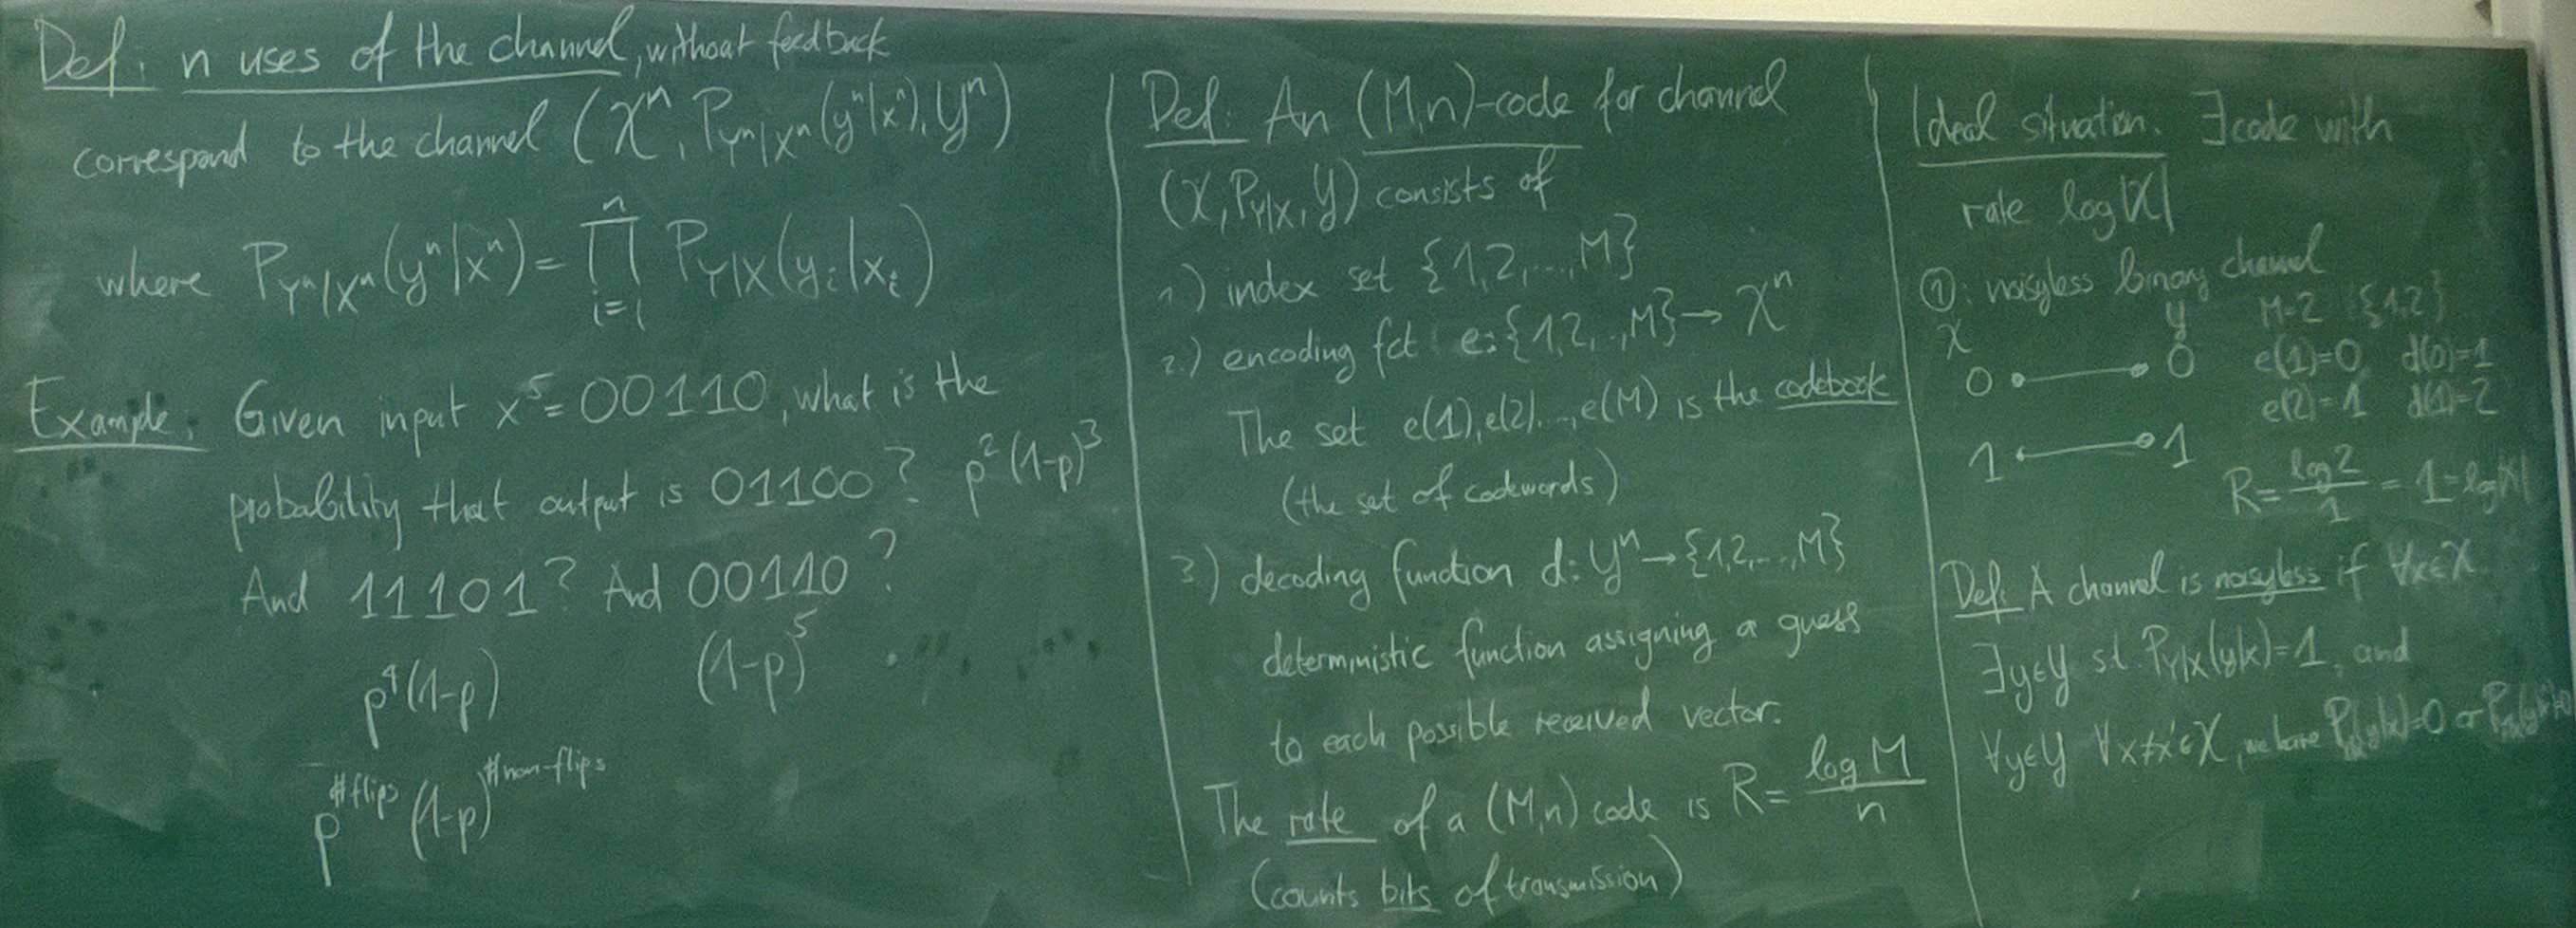 Def: n uses of the channel, without feedback
correspond to the channel (X^n, P_{Y^n|X^n}(y^n|x^n), Y^n)
where P_{Y^n|X^n}(y^n|x^n) = ∏_{i=1}^{n} P_{Y|X}(y_i|x_i)
Example: Given input x^5=00110, what is the
probability that output is 01100? p^2(1-p)^3
And 11101? And 00110?
p^4(1-p) (1-p)^5
p^{#flips} (1-p)^{#non-flips}
Def: An (M,n)-code for channel
(X, P_{Y|X}, Y) consists of
1.) index set {1,2,...,M}
2.) encoding fct e: {1,2,..,M} → X^n
The set e(1),e(2),...,e(M) is the codebook
(the set of codewords)
3.) decoding function d: Y^n → {1,2,...,M}
deterministic function assigning a guess
to each possible received vector.
The rate of a (M,n) code is R = log M / n
(counts bits of transmission)
Ideal situation: ∃ code with
rate log|X|
①: noisyless binary channel
X Y M=2 {1,2}
0 0 e(1)=0 d(0)=1
e(2)=1 d(1)=2
1 1
R = log 2 / 1 = 1 = log|X|
Def: A channel is noisyless if ∀x∈X
∃y∈Y st. P_{Y|X}(y|x)=1, and
∀y∈Y ∀x≠x'∈X, we have P_{Y|X}(y|x)=0 or